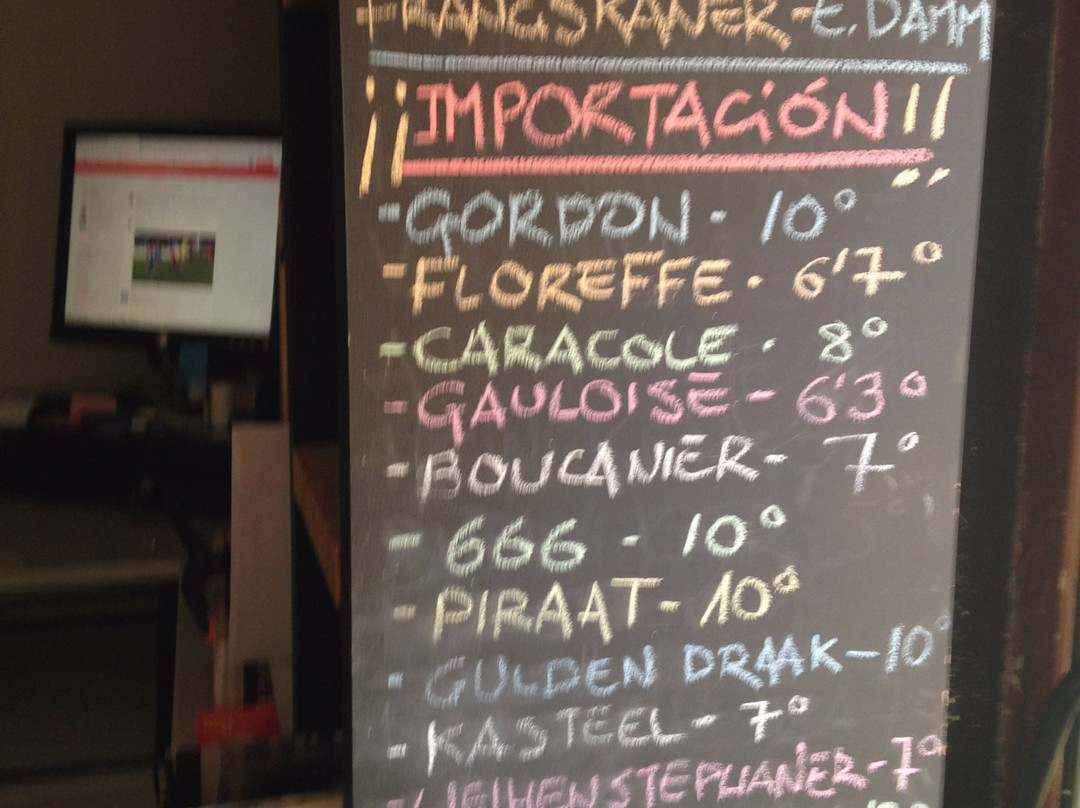 -FRANGSKANER-E.DAMM
¡¡IMPORTACIÓN!!
-GORDON· 10º
-FLOREFFE· 6'7º
-CARACOLE· 8º
-GAULOISE- 6'3º
-BOUCANIER- 7º
- 666 - 10º
- PIRAAT- 10º
- GULDEN DRAAK-10º
- KASTEEL- 7º
-WEIHENSTEPHANER-7º